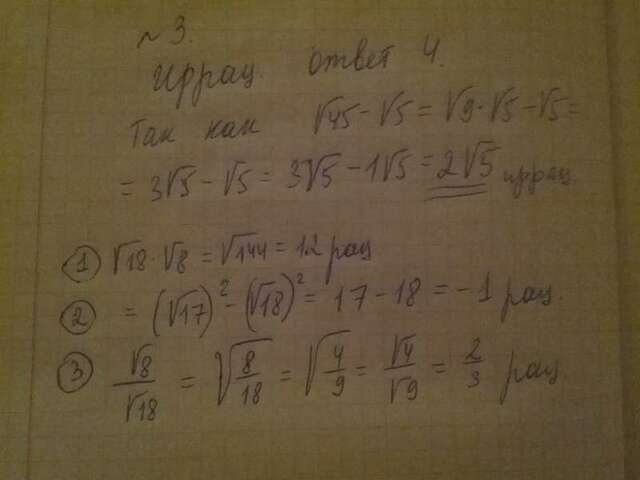 № 3.
Иррац. ответ 4.
Так как √45 - √5 = √9·√5 - √5 =
= 3√5 - √5 = 3√5 - 1√5 = 2√5 иррац.
① √18·√8 = √144 = 12 рац
② = (√17)² - (√18)² = 17 - 18 = -1 рац.
③ √8/√18 = √(8/18) = √(4/9) = √4/√9 = 2/3 рац